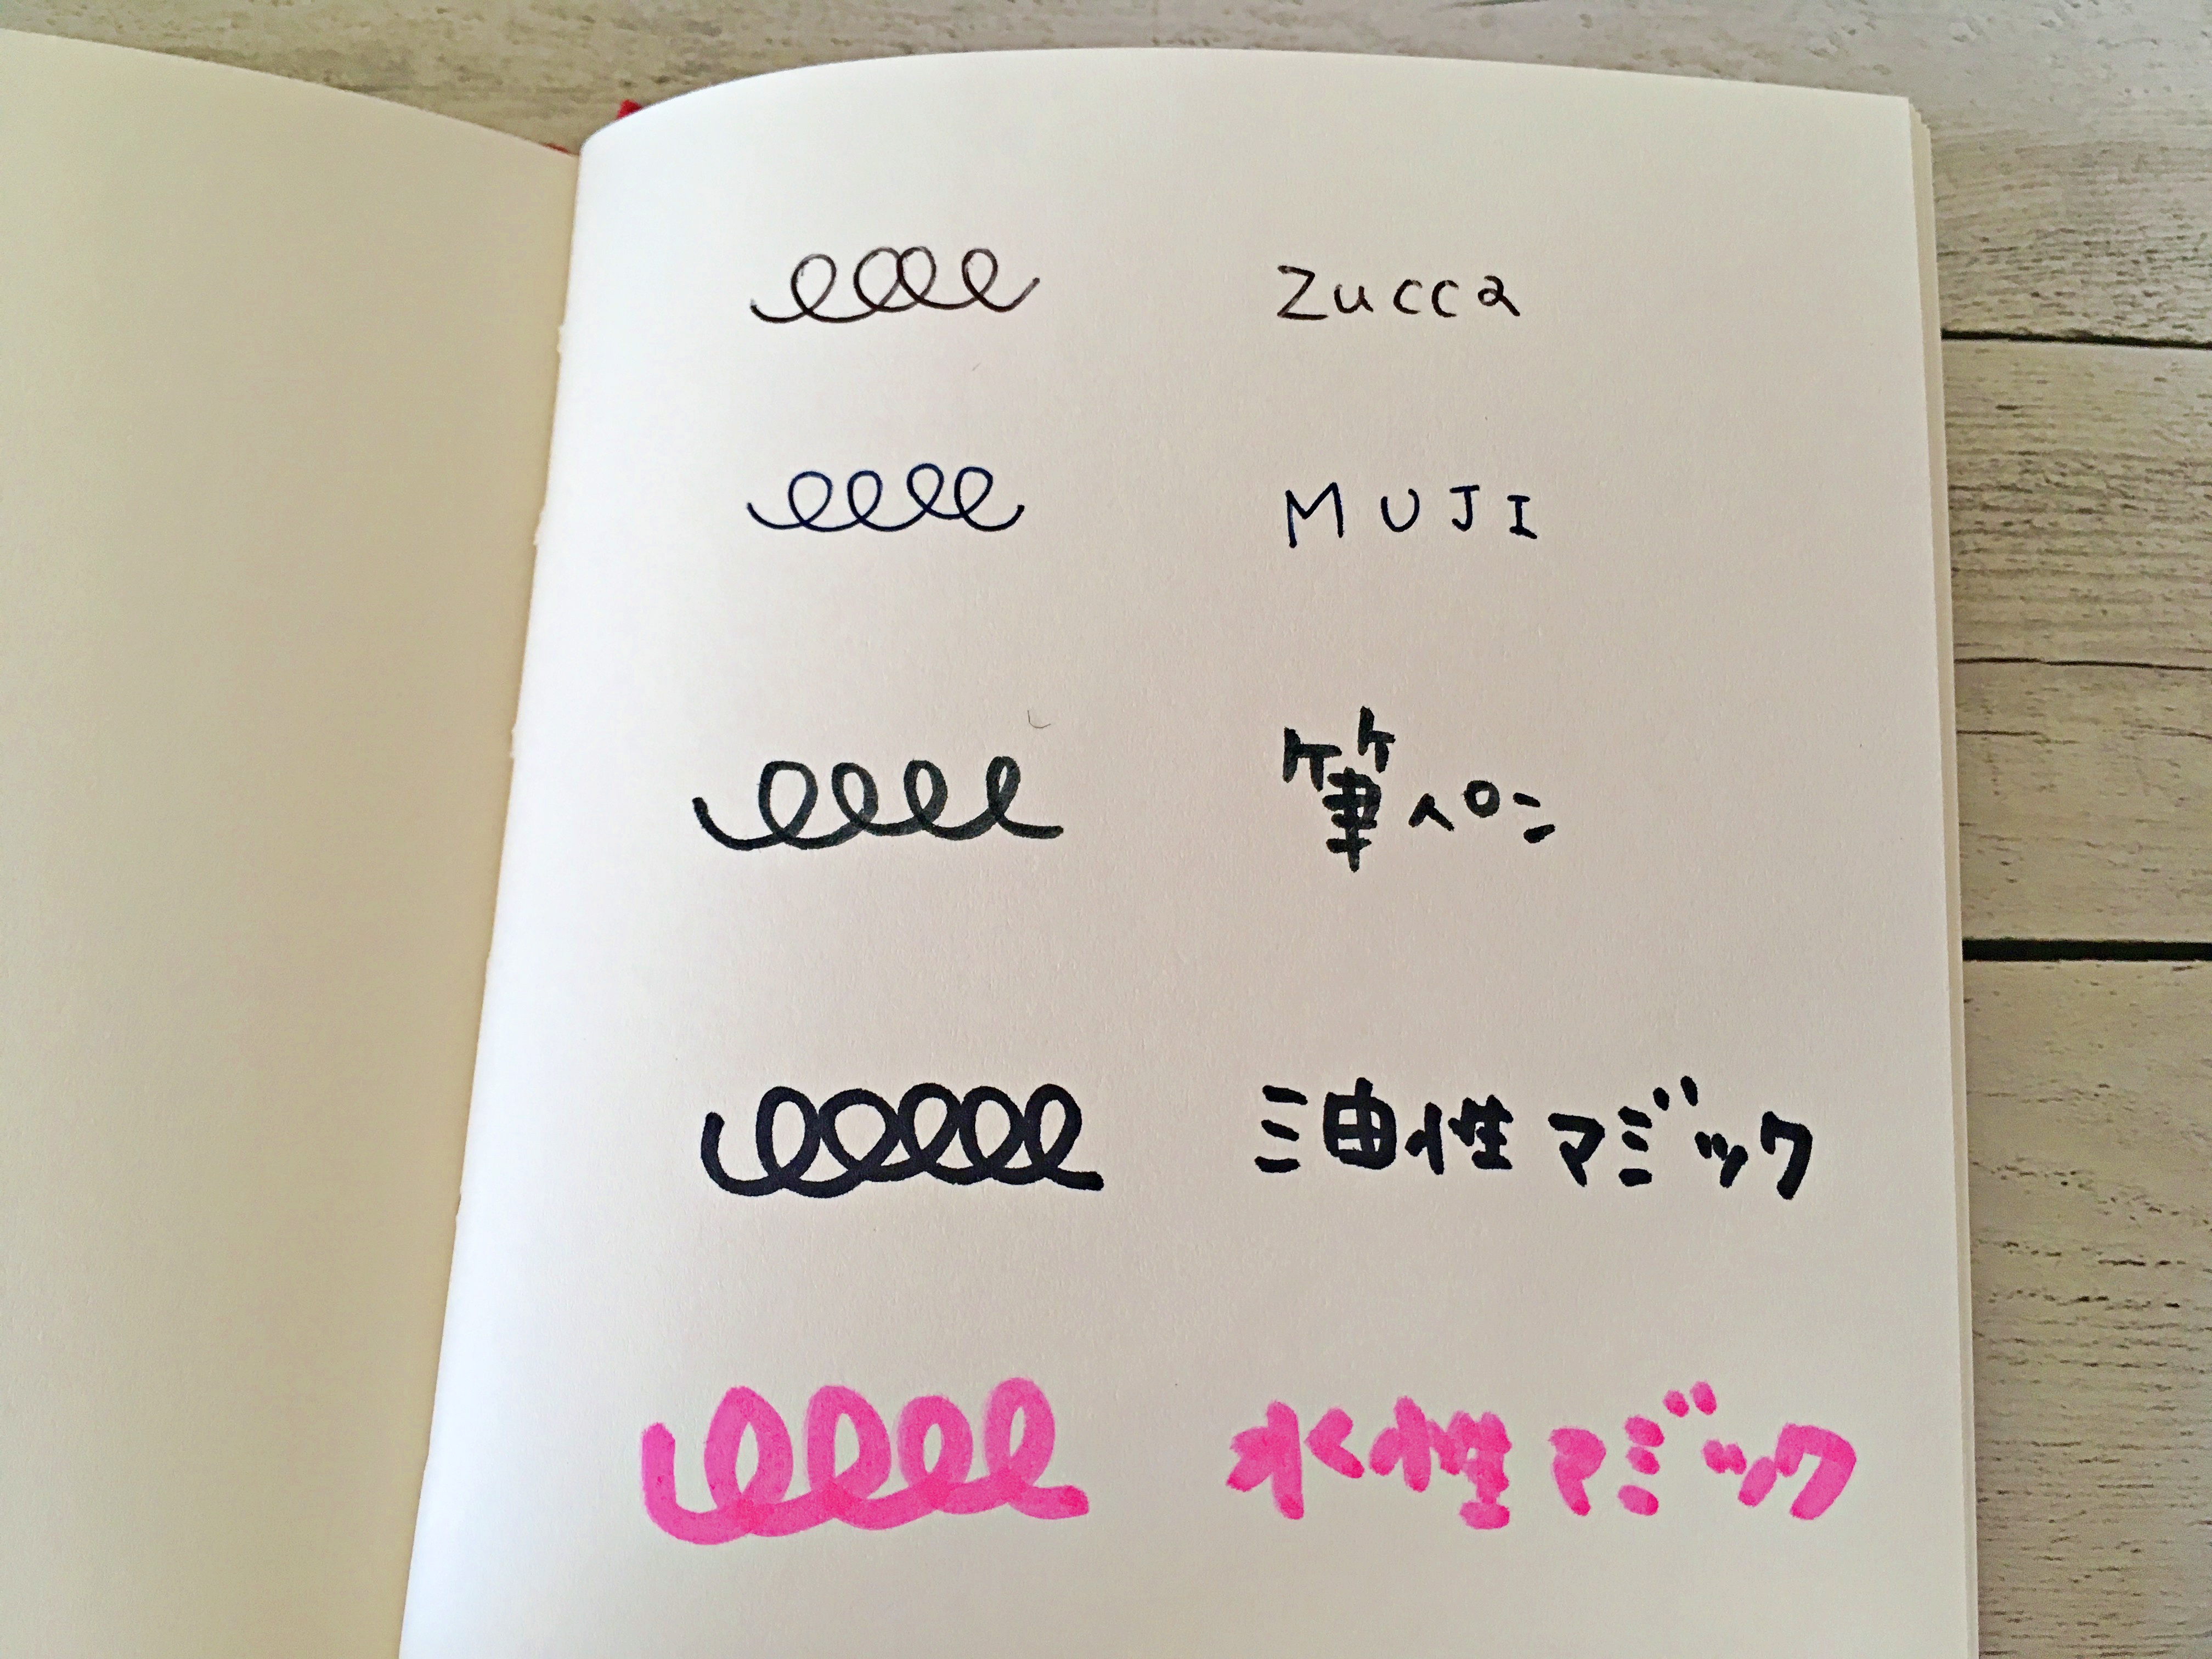 Zucca
MUJI
筆ペン
油性マジック
水性マジック